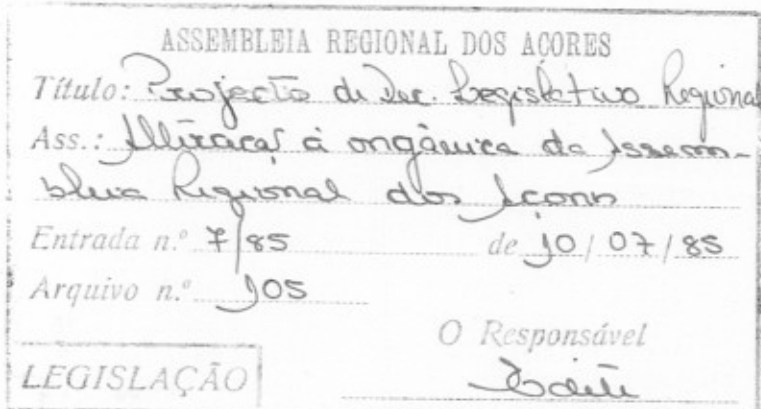 ASSEMBLEIA REGIONAL DOS AÇORES
Título: Projecto de Dec. Legislativo Regional
Ass.: Alteração à orgânica da Assem-
bleia Regional dos Açores
Entrada n.º 7/85 de 10/07/85
Arquivo n.º 105
O Responsável
LEGISLAÇÃO